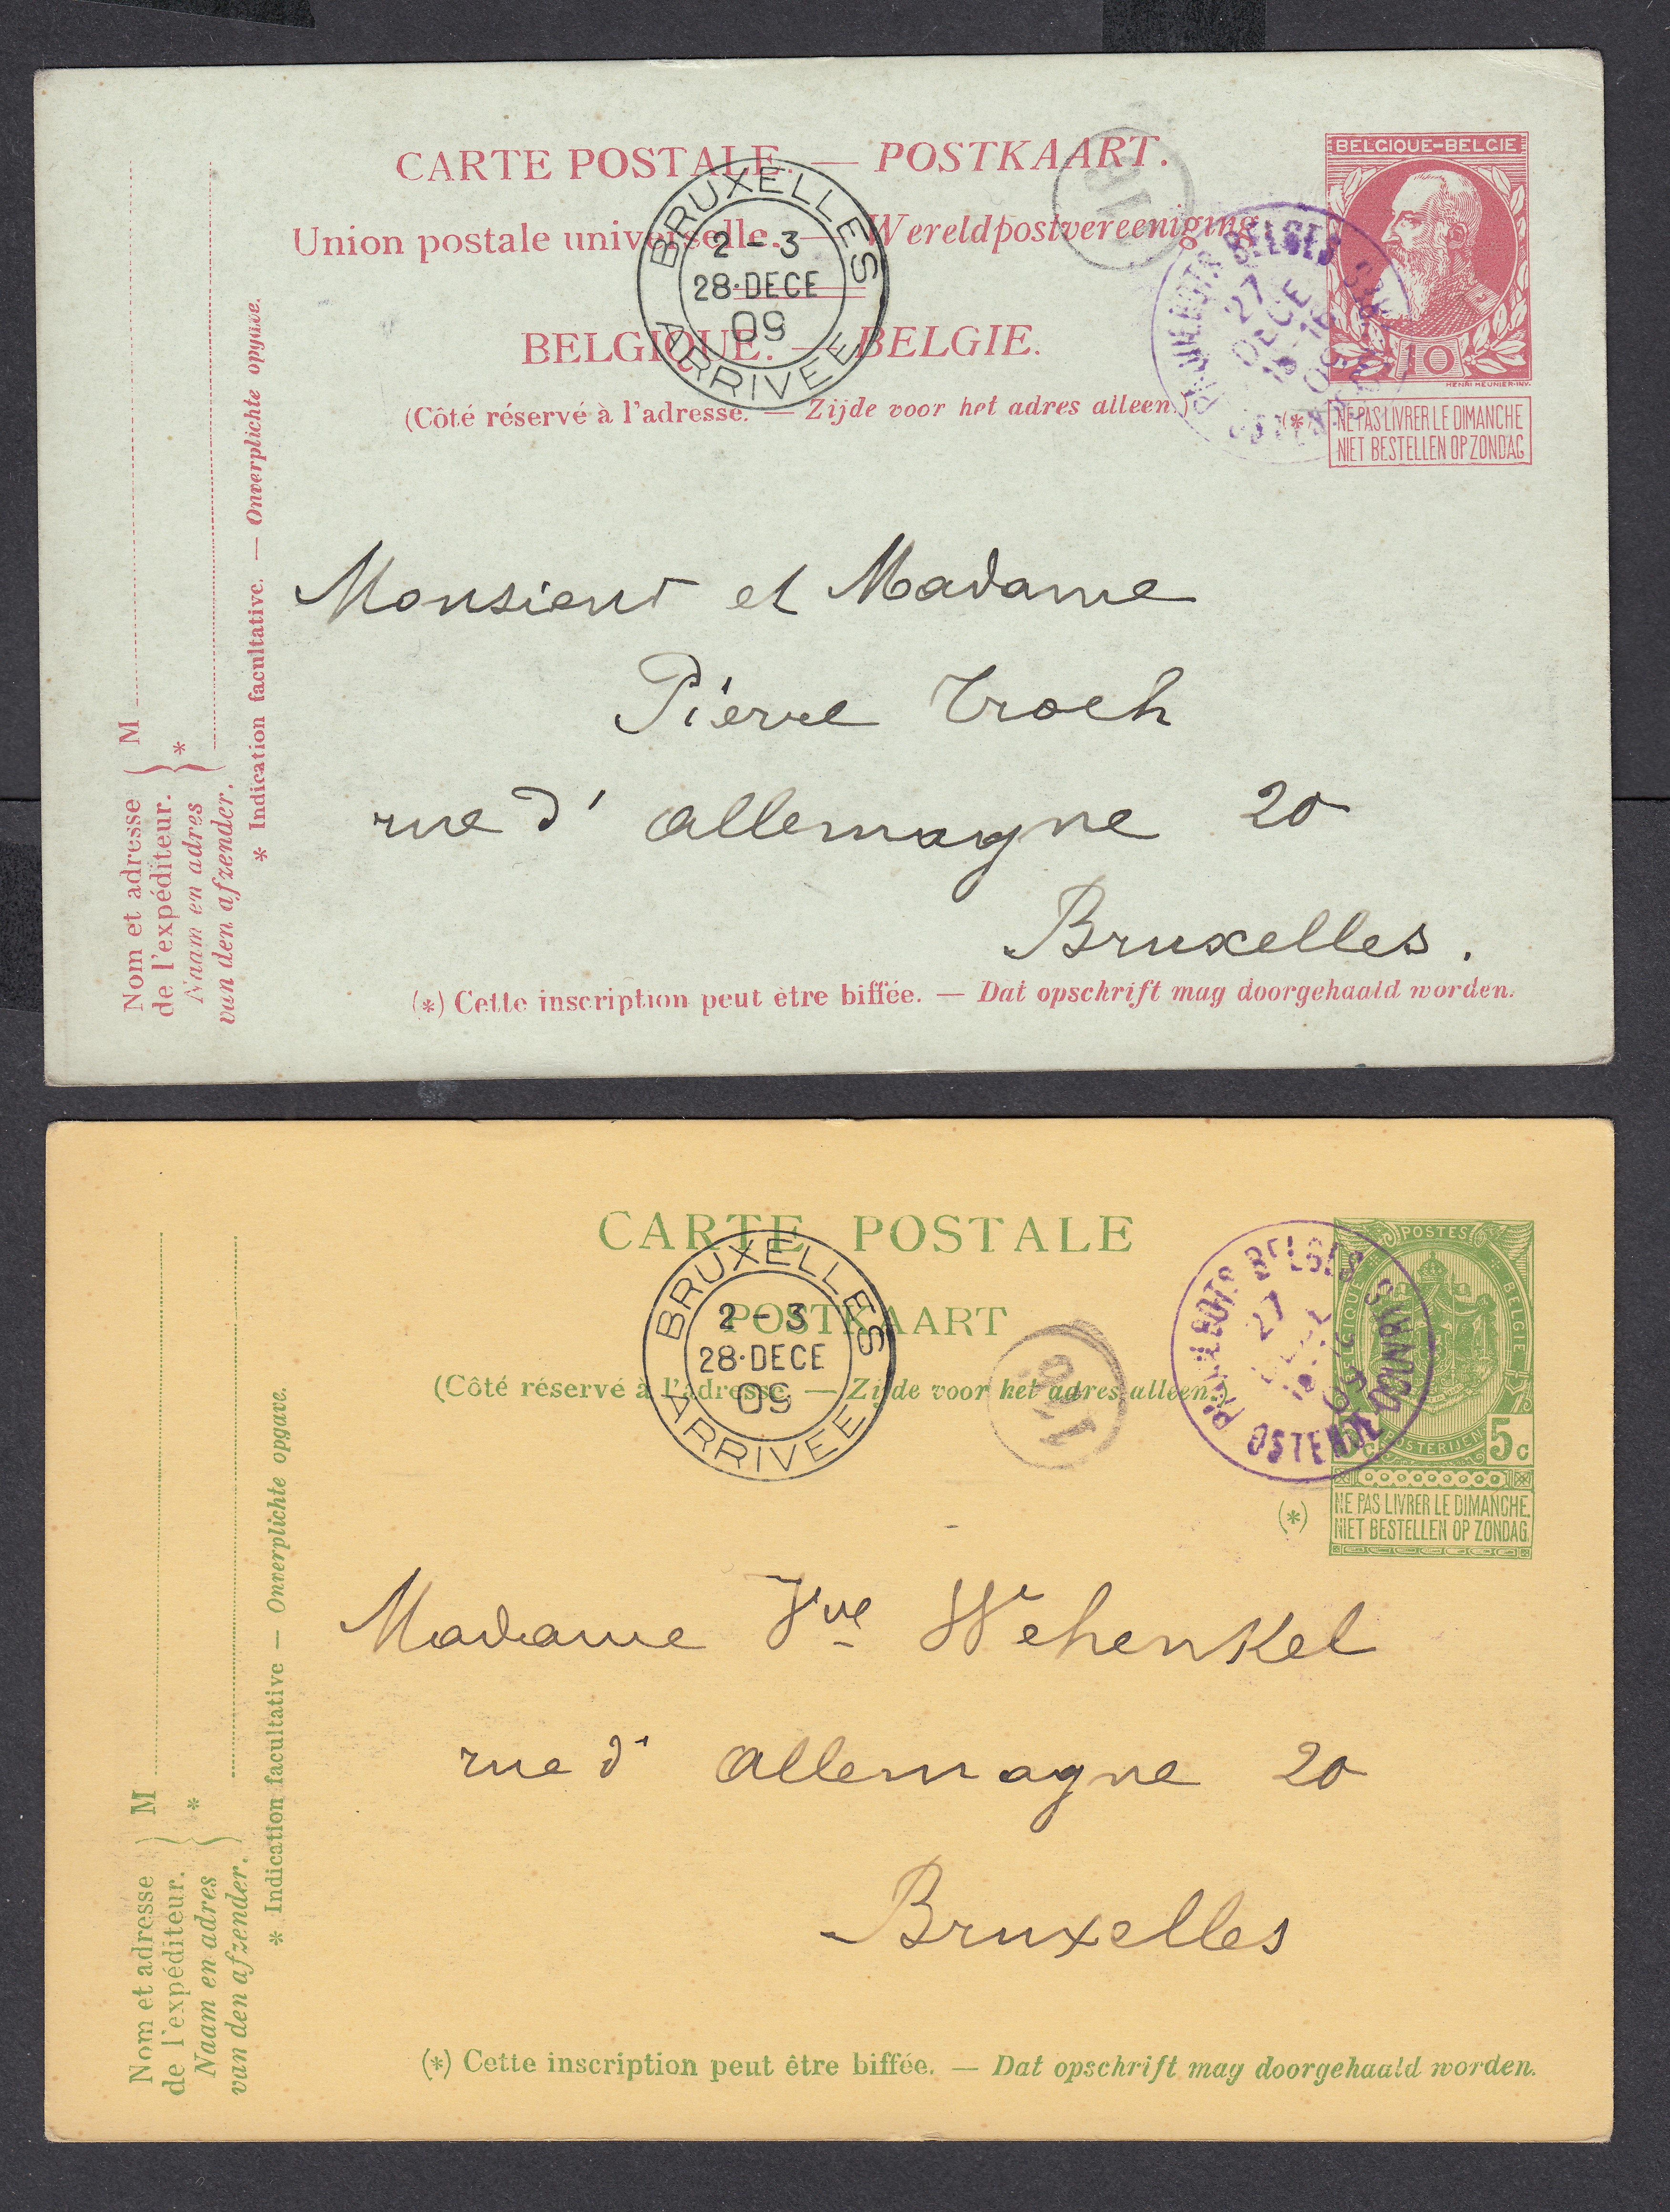 CARTE POSTALE. — POSTKAART.
Union postale universelle. — Wereldpostvereeniging
BELGIQUE. — BELGIE.
(Côté réservé à l'adresse. — Zijde voor het adres alleen.)
BRUXELLES
2-3
28·DECE
09
ARRIVEE
BELGES
27
DECE
09
BELGIQUE-BELGIE
10
HENRI MEUNIER-INV.
(*) NE PAS LIVRER LE DIMANCHE
NIET BESTELLEN OP ZONDAG
Monsieur et Madame
Pierre Troch
rue d'allemagne 20
Bruxelles.
(*) Cette inscription peut être biffée. — Dat opschrift mag doorgehaald worden.
Nom et adresse
de l'expéditeur. } M
Naam en adres
van den afzender. } *
* Indication facultative. — Onverplichte opgave.
CARTE POSTALE
POSTKAART
(Côté réservé à l'adresse. — Zijde voor het adres alleen.)
BRUXELLES
2-3
28·DECE
09
ARRIVEE
PAQUEBOTS BELGES
27
OSTENDE DOUVRES
POSTES
BELGIQUE BELGIE
POSTERIJEN
5c 5c
(*) NE PAS LIVRER LE DIMANCHE.
NIET BESTELLEN OP ZONDAG
Madame Vve Wehenkel
rue d'allemagne 20
Bruxelles
(*) Cette inscription peut être biffée. — Dat opschrift mag doorgehaald worden.
Nom et adresse
de l'expéditeur. } M
Naam en adres
van den afzender. } *
* Indication facultative — Onverplichte opgave.